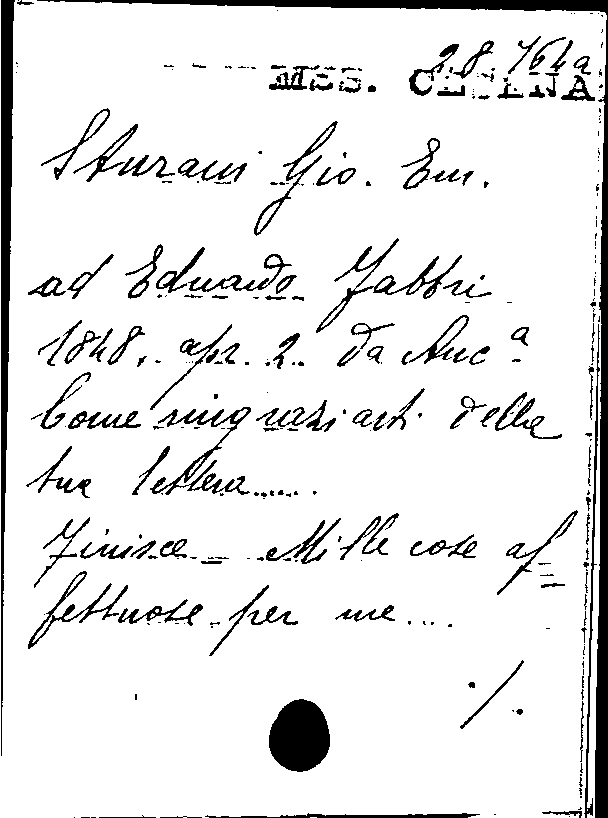 2.8.764a
MSS. CESENA
Sturani Gio. Em.
ad Eduardo Fabbri
1848. apr. 2. Da Anc.ª
Come ringraziarti della
tua lettera.....
Finisce - Mille cose af=
fettuose per me....
./.